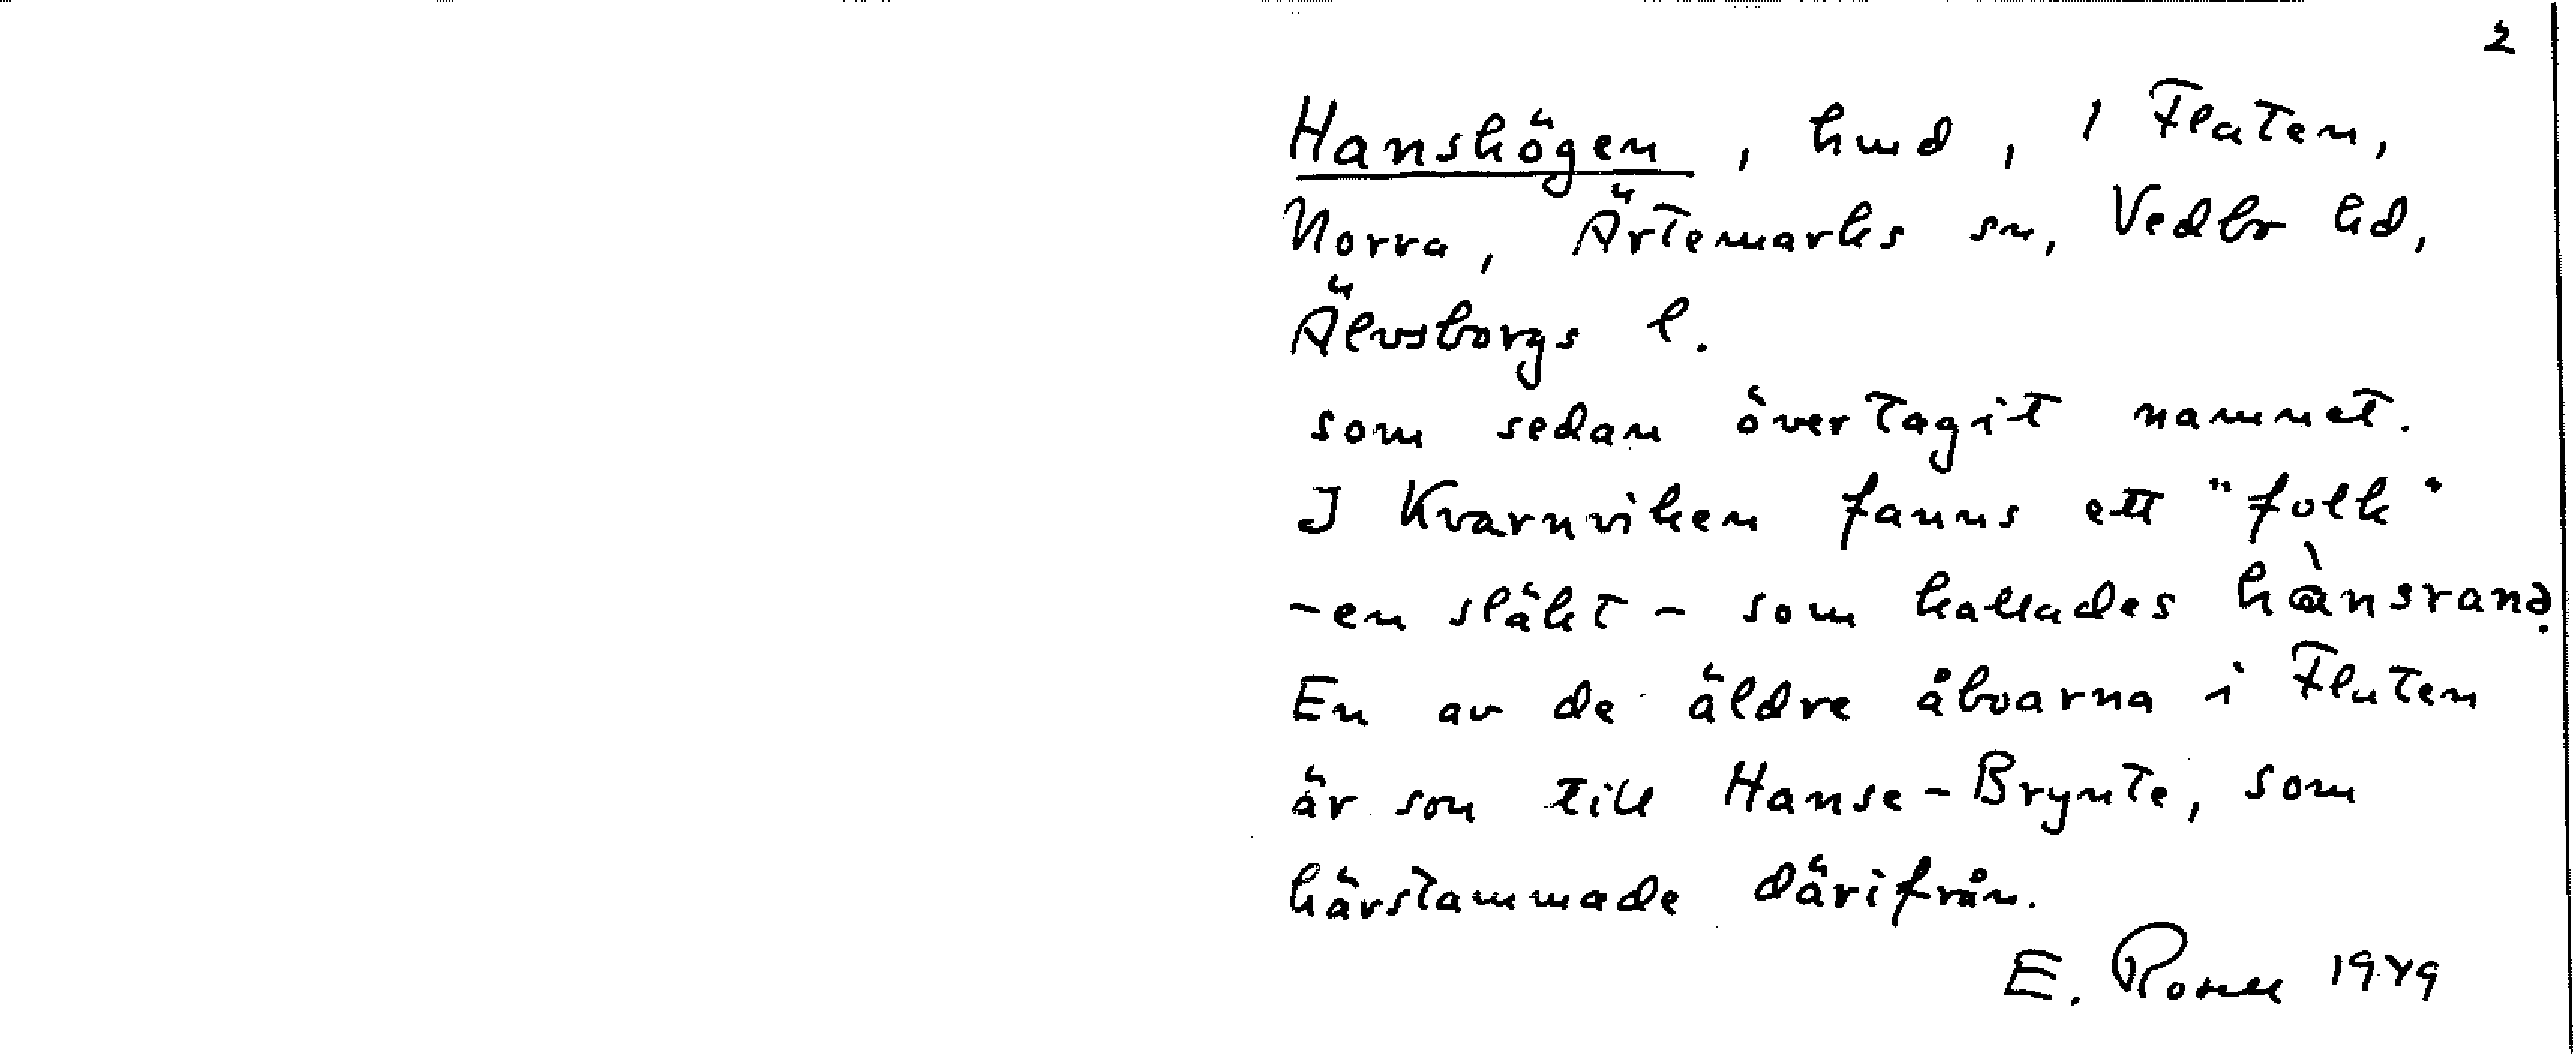 2
Hanshögen, hmd, 1 Flaten,
Norra, Ärtemarks sn, Vedbr hd,
Älvsborgs l.
som sedan övertagit namnet.
I Kvarnviken fanns ett "folk"
- en släkt - som kallades hànsranə.
En av de äldre åboarna i Flaten
är son till Hanse-Brynte, som
härstammade därifrån.
E. Rosell 1949